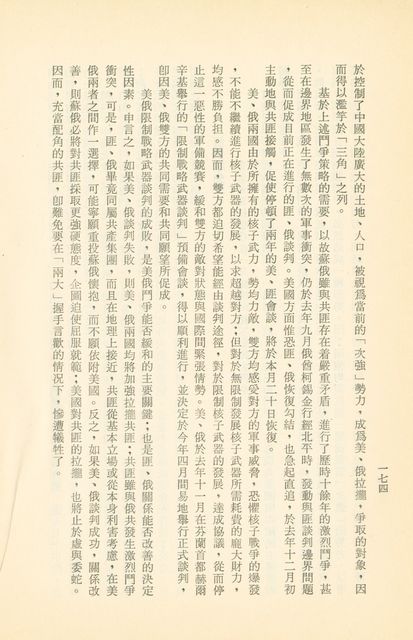 一七四
於控制了中國大陸廣大的土地、人口，被視爲當前的「次強」勢力，成爲美、俄拉攏，爭取的對象，因
而得以濫竽於「三角」之列。
基於上述鬥爭策略的需要，以故蘇俄雖與共匪存在着嚴重矛盾，進行了歷時十餘年的激烈鬥爭，甚
至在邊界地區發生了無數次的軍事衝突，仍於去年九月俄酋柯錫金行經北平時，發動與匪談判邊界問題
，從而促成目前正在進行的匪、俄談判。美國方面惟恐匪、俄恢復勾結，也急起直追，於去年十二月初
主動地與共匪接觸，促使停頓了兩年的美、匪會談，將於本月二十日恢復。
美、俄兩國由於所擁有的核子武力，勢均力敵，雙方均感受對方的軍事威脅，恐懼核子戰爭的爆發
，不能不繼續進行核子武器的發展，以求超越對方；但對於無限制發展核子武器所需耗費的龐大財力，
均感不勝負担。因而，雙方都迫切希望能經由談判途徑，對於限制核子武器的發展，達成協議，從而停
止這一惡性的軍備競賽，緩和雙方的敵對狀態與國際間緊張情勢。美、俄於去年十一月在芬蘭首都赫爾
辛基舉行的「限制戰略武器談判」預備會談，得以順利進行，並決定於今年四月間易地舉行正式談判，
卽因美、俄雙方的共同需要和共同願望所促成。
美俄限制戰略武器談判的成敗，是美俄鬥爭能否緩和的主要關鍵；也是匪、俄關係能否改善的決定
性因素。申言之，如果美、俄談判失敗，則美、俄兩國均將加強拉攏共匪；共匪雖與俄共發生激烈鬥爭
衝突，可是，匪、俄畢竟同屬共產集團，而且在地理上接近，共匪從基本立場或從本身利害考慮，在美
俄兩者之間作一選擇，可能寧願重投蘇俄懷抱，而不願依附美國。反之，如果美、俄談判成功，關係改
善，則蘇俄必將對共匪採取更強硬態度，企圖迫使屈服就範；美國對共匪的拉攏，也將止於虛與委蛇。
因而，充當配角的共匪，卽難免要在「兩大」握手言歡的情況下，慘遭犧牲了。